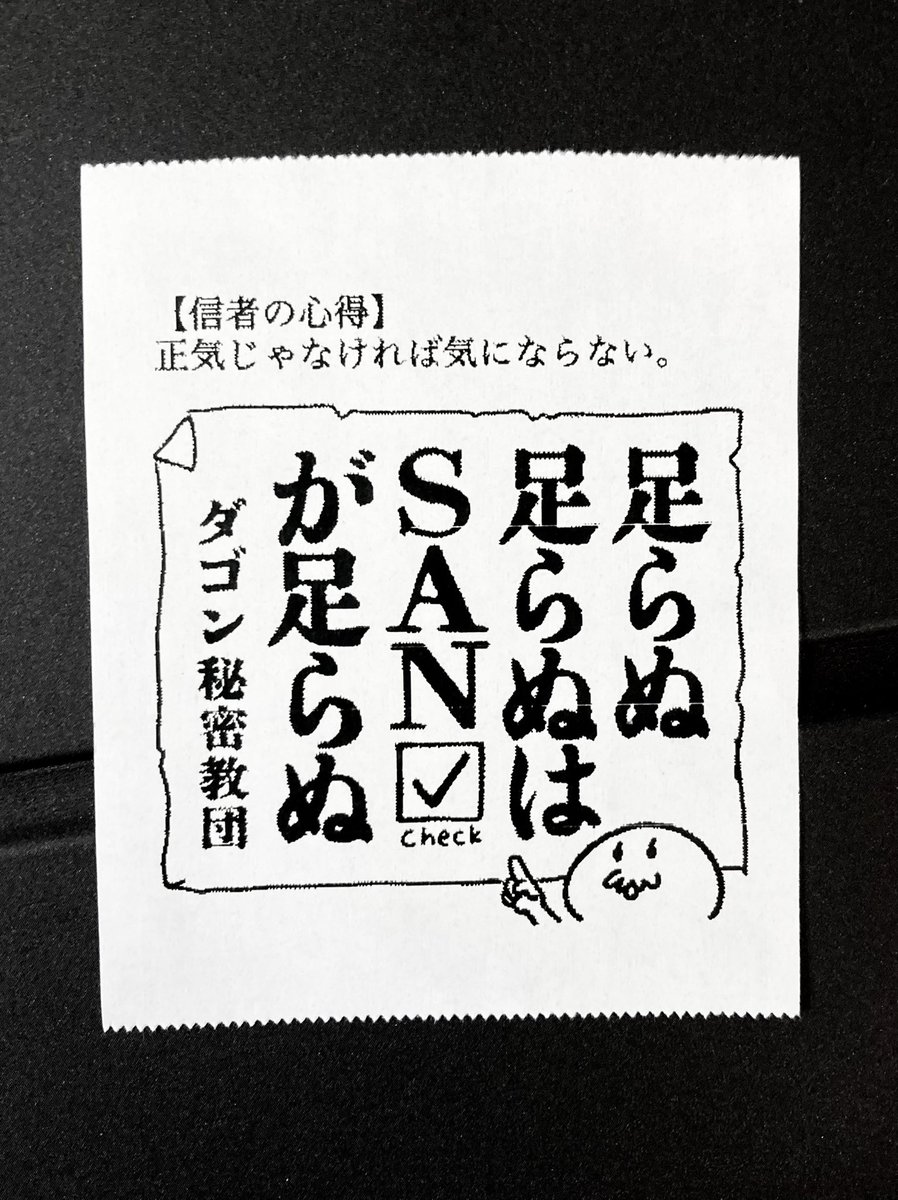 【信者の心得】
正気じゃなければ気にならない。
足らぬ
足らぬは
SAN
check
が足らぬ
ダゴン秘密教団